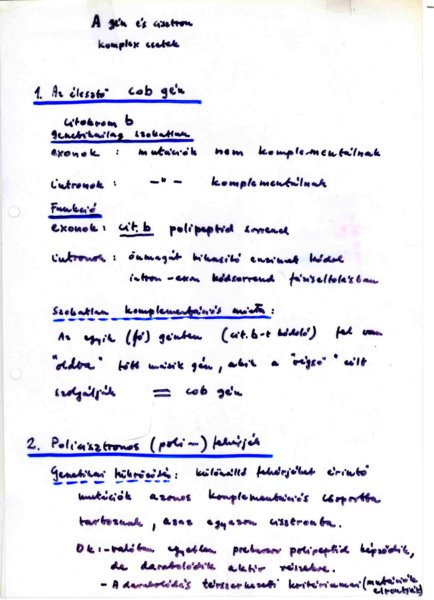 A gén és cisztron
komplex esetek
1. Az élesztő cob gén
citokrom b
genetikailag szokatlan
exonok : mutációk nem komplementálnak
intronok : -"- komplementálnak
Funkció
exonok : cit. b polipeptid sorrend
intronok : önmagát kihasító enzimet kódol
intron-exon kódsorrend fáziseltolásban
Szokatlan komplementációs minta :
Az egyik (fő) génben (cit. b-t kódoló) fel van
"oldva" több másik gén, akik a "végső" célt
szolgálják = cob gén
2. Policisztronos (poli~) fehérjék
Genetikai tükröződés : különálló fehérjéket érintő
mutációk azonos komplementációs csoportba
tartoznak, azaz egyazon cisztronba.
Ok : - valóban egyetlen prekurzor polipeptid képződik,
de darabolódik aktív részekre.
- A darabolódás térszerkezeti kritériumai (mutációk
elrontják)